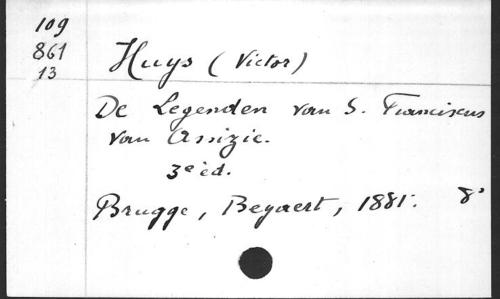 109
861
13
Huys (Victor)
De Legenden van S. Franciscus
van Assizie.
3e éd.
Brugge, Beyaert, 1881. 8°